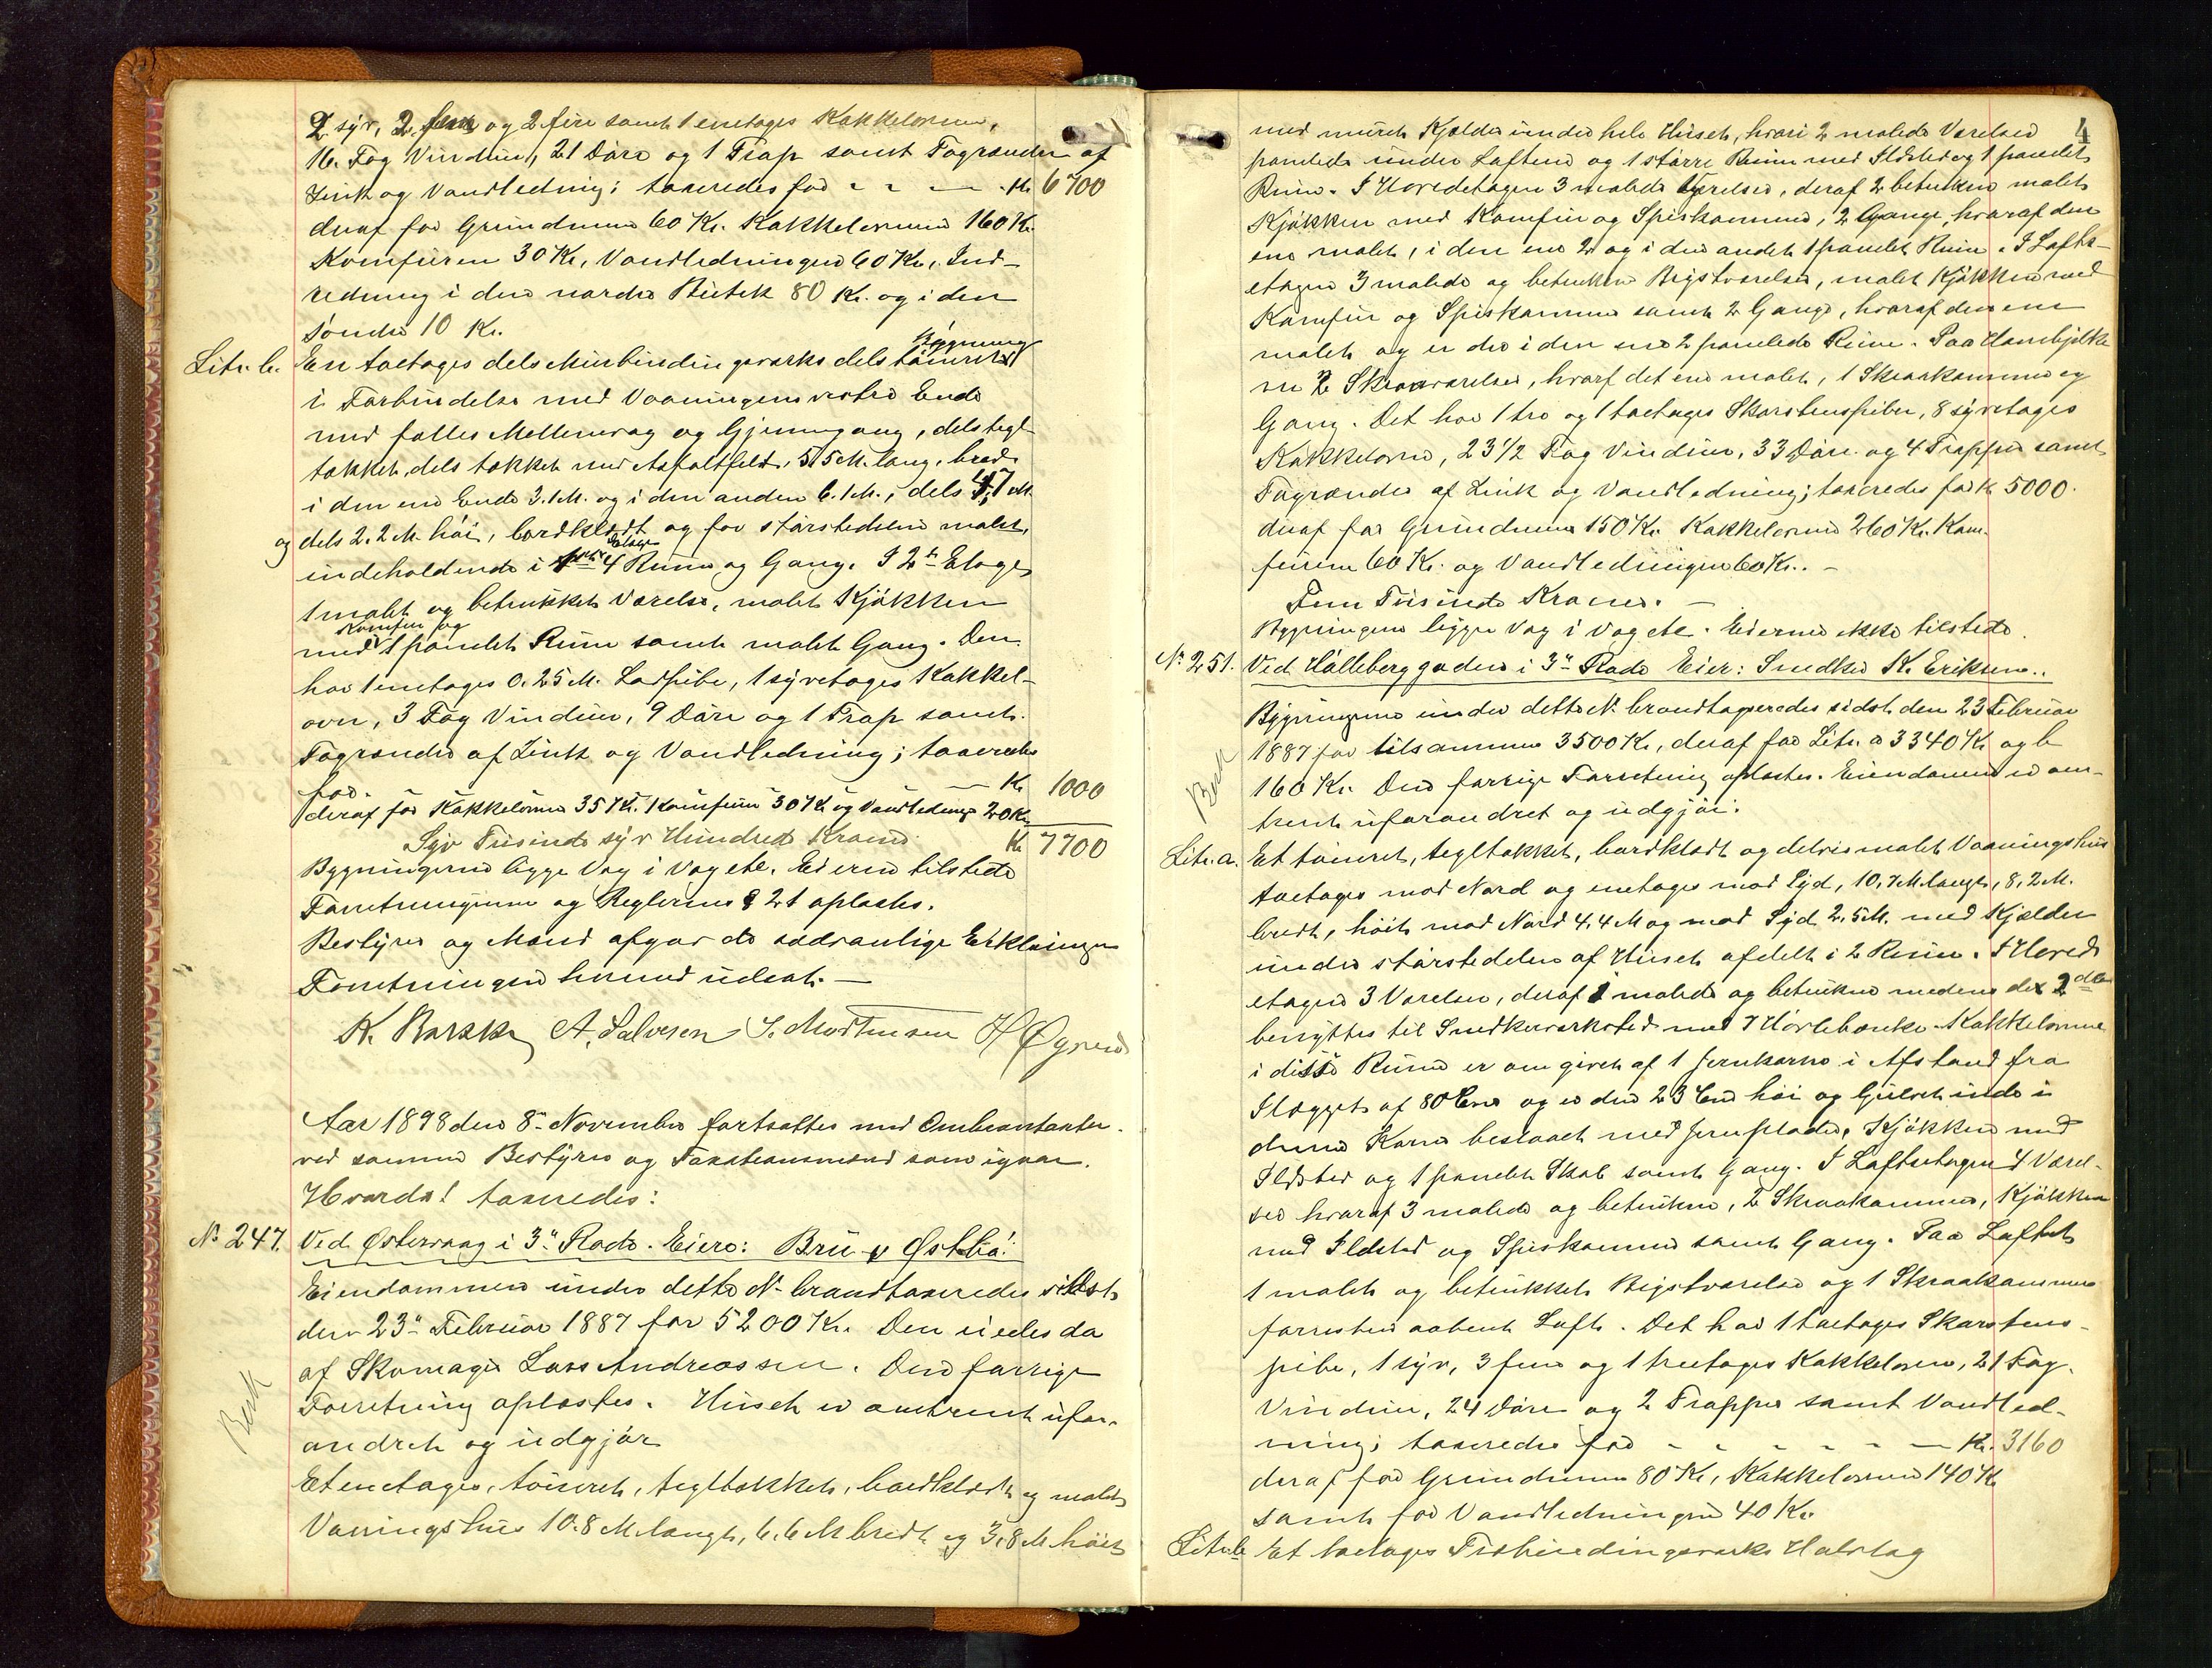 2 syv, 2 fem og 2 fire samt 1 enetages Kakkelovne,
16. Fag Vinduer, 21 Døre og 1 Trap samt Tagrender af
Zink og Vandledning; taxeredes for - - - Kr. 6700
deraf for Grundmure 60 Kr. Kakkelovnene 160 Kr.
Komfuren 30 Kr, Vandledningen 60 Kr. Ind-
redning i den nordre Butik 80 Kr. og i den
søndre 10 Kr.
Litr. b. En toetages dels Murbindingsverks dels tømret Bygning
i Forbindelse med Vaaningens vestre Ende
med fælles Mellemvæg og Gjennemgang, dels tegl-
tækket, dels tækket med Asfaltfeld, 5.5 M. lang, bred
i den ene Ende 3.1 M. og i den anden 6.1 M., dels 4,7 M.
og dels 2.2 M. høi, bordklædt og for størstedelen malet,
indeholdende i 1ste Etage 4 Rum og Gang. I 2den Etage
1 malet og betrukket Værelse, malet Kjøkken
med Komfur og 1 panelet Rum samt malet Gang. Den
har 1 enetages 0.25 M. Ladpibe, 1 syvetages Kakkel-
ovn, 3 Fag Vinduer, 9 Døre og 1 Trap samt
Tagrender af Zink og Vandledning; taxeredes
for. - - - Kr. 1000
deraf for Kakkelovnen 35 Kr. Komfuren 30 Kr og Vandledning 20 Kr.
Syv Tusinde syv Hundrede Kroner. Kr. 7700
Bygningerne ligge Væg i Væg etc. Eierne tilstede
Forretningerne og Reglernes § 21 oplæstes.
Bestyrer og Mænd afgav de sædvanlige Erklæringer
Forretningen hermed udsat. —
K. Barske A. Salvesen S. Mortensen H Øgreid
Aar 1898 den 8de November fortsattes med Ombrandtaxten
ved samme Bestyrer og Taxationsmænd som igaar.
Hvorda! taxeredes:
No 247. Ved Østervaag i 3de Rode. Eiere: Bru & Østbø.
Eiendommen under dette No brandtaxeredes sidst
den 23de Februar 1887 for 5200 Kr. Den eiedes da
af Skomager Lars Andreassen. Den forrige
Forretning oplæstes. Huset er omtrent ufor-
andret og udgjør
Besk
Et enetages, tømret, tegltækket, bordklædt og malet
Vaaningshus 10.8 M langt, 6.6 M bredt og 3,8 M høit
4
med muret Kjælder under hele Huset, hvori 2 malede Værelser
panelede under Loftene og 1 større Rum med Ildsted og 1 panelet
Rum. I Hovedetagen 3 malede Værelser, deraf 2 betrukne malet
Kjøkken med Komfur og Spiskammer, 2 Gange, hvoraf den
ene malet, i den ene 2 og i den anden 1 panelet Rum. I Lofts-
etagen 3 malede og betrukne Kvistværelser, malet Kjøkken med
Komfur og Spiskammer samt 2 Gange, hvoraf den ene
malet og er der i den ene 2 panelede Rum. Paa Hanebjelke
ne 2 Skraaværelser, hvoraf det ene malet, 1 Skraakammer og
Gang. Det har 1 tre og 1 toetages Skorstenspiber, 8 syvetages
Kakkelovne, 23 1/2 Fag Vinduer, 33 Døre og 4 Trapper samt
Tagrender af Zink og Vandledning; taxeredes for Kr 5000.
deraf for Grundmure 150 Kr. Kakkelovnene 260 Kr. Kom-
furene 60 Kr. og Vandledningen 60 Kr. –
Fem Tusinde Kroner. –
Bygningerne ligger Væg i Væg etc. Eierne ikke tilstede.
No 251. Ved Hølleberggaden i 3de Rode Eier: Snedker K. Eriksen.
Bygningerne under dette No brandtaxeredes sidst den 23 Februar
1887 for tilsammen 3500 Kr, deraf for Litr. a 3340 Kr og b
160 Kr. Den forrige Forretning oplæstes. Eiendommen er om-
trent uforandret og udgjør:
Besk
Litr. a. Et tømret, tegltækket, bordklædt og delvis malet Vaaningshus
toetages mod Nord og enetages mod Syd, 10,7 M langt, 8,2 M.
bredt, høit mod Nord 4,4 M og mod Syd 2.5 M. med Kjælder
under størstedelen af Huset afdelt i 2 Rum. I Hoved-
etagen 3 Værelser, deraf 1 malede og betrukne medens de 2de
benyttes til Snedkerværksted med 7 Høvlebænke. Kakkelovnene
i disse Rum er omgivet af 1 Jernkarm i Afstand fra
Ilægget af 80 Cm og er den 23 Cm høi og Gulvet inde i
denne Karm beslaaet med Jernplader, Kjøkken med
Ildsted og 1 panelet Skab samt Gang. I Loftsetagen 4 Værel-
ser hvoraf 3 malede og betrukne, 2 Skraakammer, Kjøkken
med Ildsted og Spiskammer samt Gang. Paa Loftet
1 malet og betrukket Kvistværelse og 1 Skraakammer
forresten aabent Loft. Det har 1 toetages Skorstens-
pibe, 1 syv, 3 fem og 1 treetages Kakkelovne, 21 Fag
Vinduer, 24 Døre og 2 Trapper samt Vandled-
ning; taxeredes for - - - - - Kr. 3160
deraf for Grundmure 80 Kr, Kakkelovnene 140 Kr
samt for Vandledningen 40 Kr.
Litr. b Et toetages Trebindingsverks Halvtag